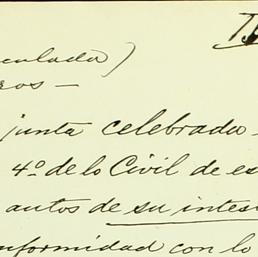 culada)
ros —
junta celebrada
4º de lo Civil de es
autos de su intes
nformidad con lo